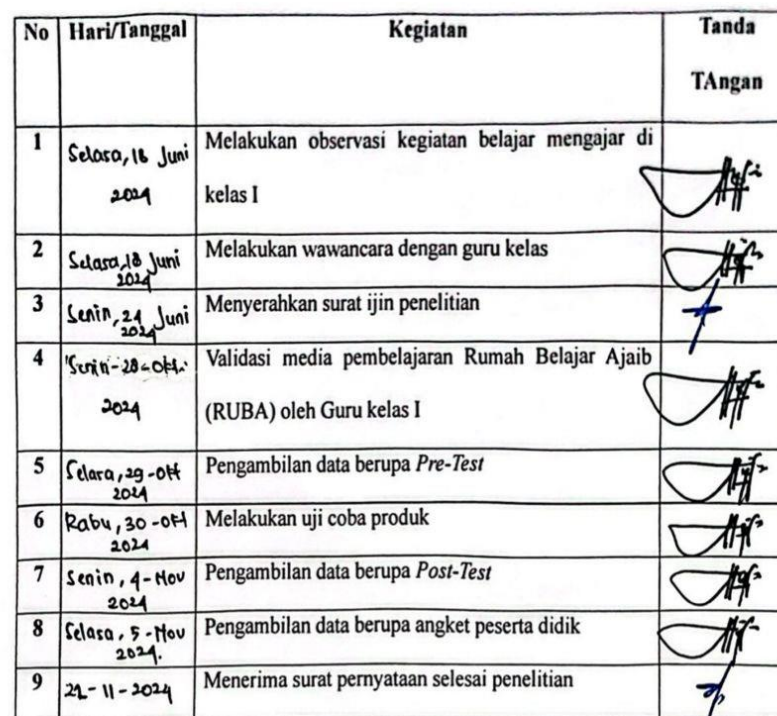 No Hari/Tanggal Kegiatan Tanda
TAngan
1 Selasa, 18 Juni Melakukan observasi kegiatan belajar mengajar di
2024 kelas I
2 Selasa, 18 Juni Melakukan wawancara dengan guru kelas
2024
3 Senin, 24 Juni Menyerahkan surat ijin penelitian
2024
4 Senin - 28 - Okt. Validasi media pembelajaran Rumah Belajar Ajaib
2024 (RUBA) oleh Guru kelas I
5 Selasa, 29 - Okt Pengambilan data berupa Pre-Test
2024
6 Rabu, 30 - Okt Melakukan uji coba produk
2024
7 Senin, 4 - Nov Pengambilan data berupa Post-Test
2024
8 Selasa, 5 - Nov Pengambilan data berupa angket peserta didik
2024.
9 21 - 11 - 2024 Menerima surat pernyataan selesai penelitian